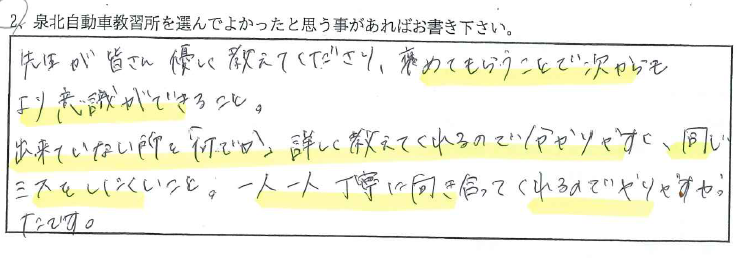 2. 泉北自動車教習所を選んでよかったと思う事があればお書き下さい。
先生が皆さん優しく教えてくださり、褒めてもらうことで次からも
より意識ができること。
出来ていない所を何でか、詳しく教えてくれるので分かりやすく、同じ
ミスをしにくいこと。一人一人丁寧に向き合ってくれるのでやりやすかっ
たです。